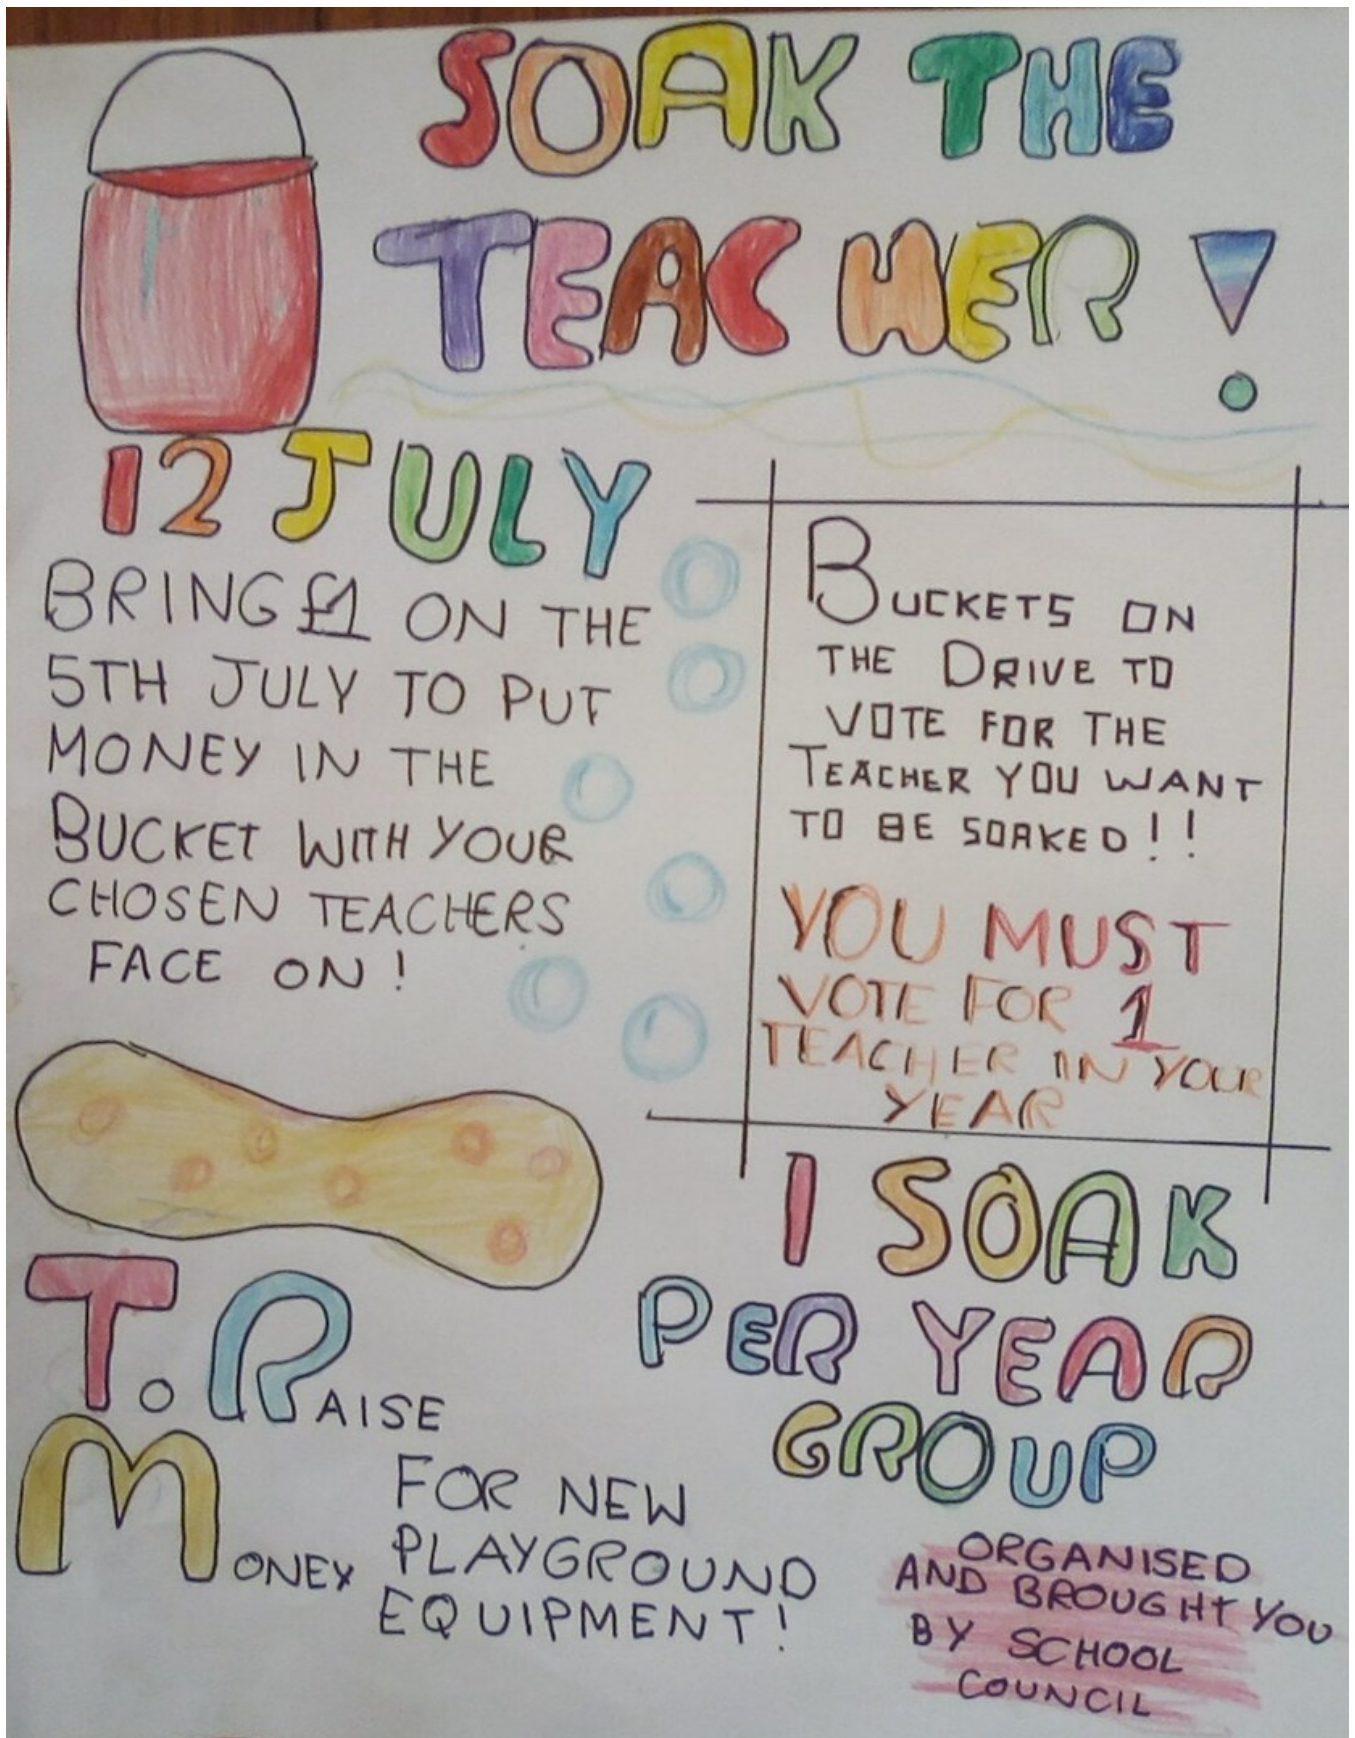 SOAK THE
TEACHER!
12 JULY
BRING £1 ON THE
5TH JULY TO PUT
MONEY IN THE
BUCKET WITH YOUR
CHOSEN TEACHERS
FACE ON!
BUCKETS ON
THE DRIVE TO
VOTE FOR THE
TEACHER YOU WANT
TO BE SOAKED!!
YOU MUST
VOTE FOR 1
TEACHER IN YOUR
YEAR
1 SOAK
PER YEAR
GROUP
TO RAISE
MONEY
FOR NEW
PLAYGROUND
EQUIPMENT!
ORGANISED
AND BROUGHT YOU
BY SCHOOL
COUNCIL